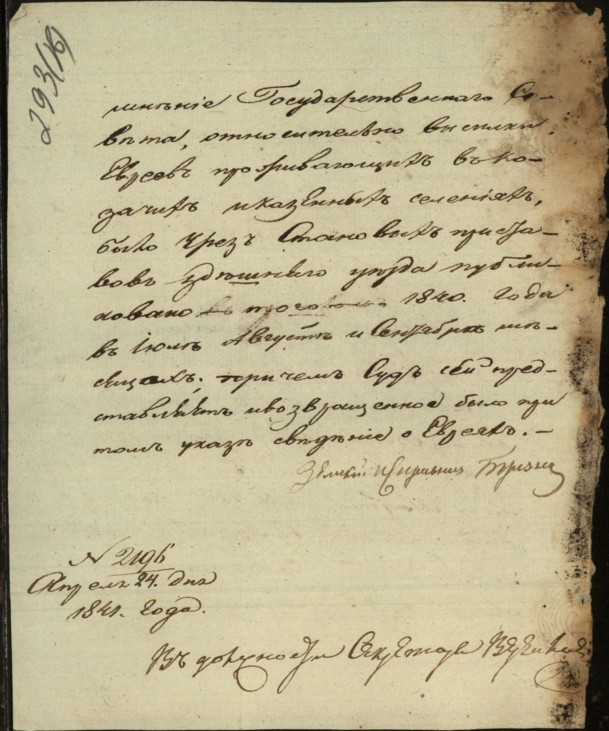 293(16)
мнѣніе Государственнаго Со-
вѣта, относительно высылки
Евреевъ проживающихъ въ ко-
зачихъ и казенныхъ селеніяхъ,
было чрезъ Становыхъ приста-
вовъ здѣшняго уѣзда публи-
ковано 1840. года
въ Іюлѣ Августѣ и Сентябрѣ мѣ-
сяцахъ. причемъ Судъ сей пред-
ставляетъ и возвращенное было при
томъ указѣ свѣдѣніе о Евреяхъ. —
Земскій Исправникъ
N 2196
Апреля 24. дня
1841. года.
Въ должности Секретаря